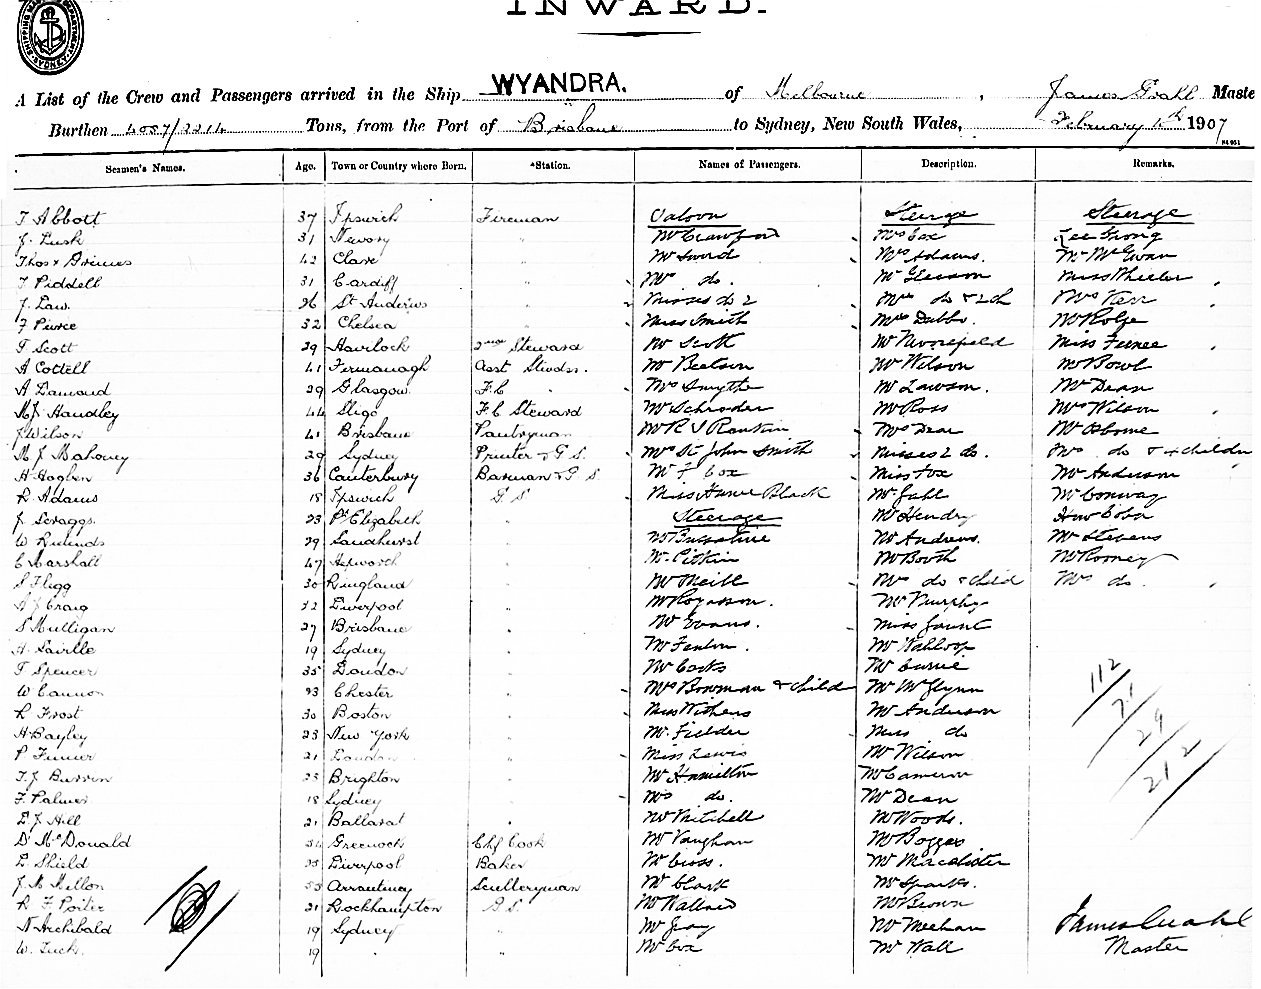 INWARD.
SHIPPING MASTER'S DEPARTMENT SYDNEY
A List of the Crew and Passengers arrived in the Ship WYANDRA. of Melbourne, James Grahl Maste
Burthen 4057/2214 Tons, from the Port of Brisbane to Sydney, New South Wales, February 1907
Seamen's Names. Age. Town or Country where Born. *Station. Names of Passengers. Description. Remarks.
T Abbott 37 Ipswich Fireman Saloon Steerage Steerage
J. Lusk 31 Newry " Mr Crawford Mrs Cox
Thos Grimes 42 Clare " Mr Sword Mrs Adams. Mr McEwan
T Piddell 31 Cardiff " Mrs do. Mr Gleeson Miss Wheeler
J. Law 26 St Andrews " Misses do 2 Mrs do & 2 ch Mrs Kerr
F Pierce 32 Chelsea " Miss Smith Mrs Dabbs. Mr Rolfe
T Scott 29 Havelock 2nd Steward Mr Scott Mr Moorefield Miss
A Cottell 41 Fermanagh Asst Stwdss. Mr Beetson Mr Wilson Mr Bowl
A Lamond 29 Glasgow F.C " Mrs Smythe Mr Lawson. Mr Dean
M J Handley 44 Sligo F C Steward Mr Schroder Mr Ross Mrs Wilson
J Wilson 41 Brisbane Pantryman Mr R J Rankin Mrs Dear Mr Osborne
M J Mahoney 29 Sydney Printer & G S. Mrs St John Smith Misses 2 do. Mrs do & 4 children
H Hogben 36 Canterbury Barman & G S Mr F Cox Miss Fox Mr Anderson
R Adams 18 Ipswich G S Miss Black Mr Gall Mr Conway
J Scraggs. 23 Pt Elizabeth " Steerage Mr Hendry
W 29 Sandhurst " Mr Ballantine Mr Andrews. Mr Stevens
C Marshall 47 Hepworth " Mr Pitkin Mr Booth Mr Rooney
S Flegg 30 Ringland " Mr Neill Mrs do & child Mrs do.
A J Craig 32 Liverpool " Mr Mr Murphy
S Mulligan 27 Brisbane " Mr Evans. Miss Gaunt
H. Saville 19 Sydney " Mr Fenton.
T Spencer 35 London " Mr Cocks Mr Currie
W Cannon 33 Chester " Mrs Bowman & child Mr McGlynn
R Frost 30 Boston " Miss Withers Mr Anderson
H Bayley 23 New York " Mr. Fielder Miss do
P 21 London " Miss Lewis Mr Wilson
T. J 25 Brighton " Mr Hamilton Mr Cameron
F. Palmer 18 Sydney " Mrs do. Mr Dean
E. J Hill 21 Ballarat " Mr Mitchell Mr Woods.
D. McDonald 34 Greenock Chf Cook Mr Vaughan
E Shield 25 Liverpool Baker Mr Cross. Mr Macalister
J. M Mellon 53 Sculleryman Mr Clark Mr Sparks.
R F Porter 21 Rockhampton G.S. Mr Mr Brown
N Archibald 19 Sydney " Mr Gray Mr Meehan
W. Tuck. 19 " Mr Cox Mr Wall
112
71
29
212
James Grahl
Master